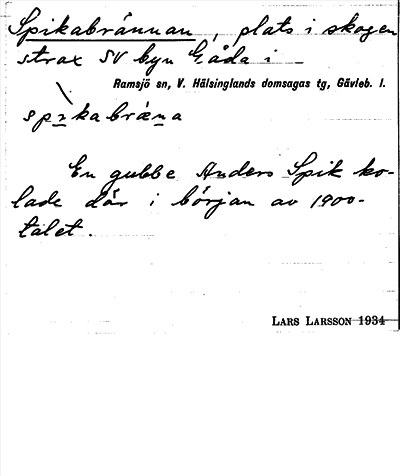 Spikabrännan, plats i skogen
strax SV byn Gåda i
Ramsjö sn, V. Hälsinglands domsagas tg, Gävleb. l.
spikabräna
En gubbe Anders Spik ko-
lade där i början av 1900-
talet.
LARS LARSSON 1934